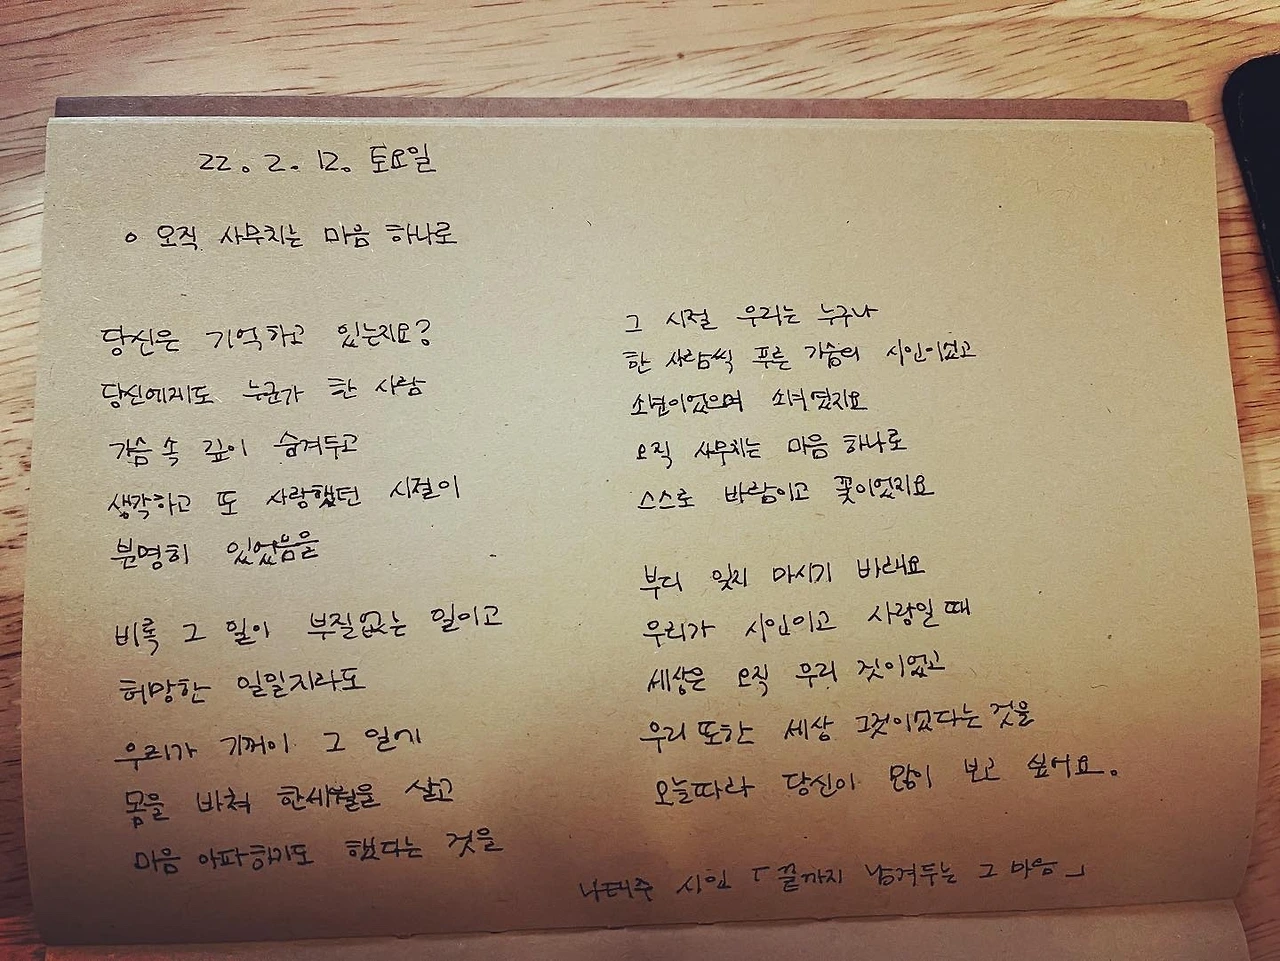 22. 2. 12. 토요일
○ 오직 사무치는 마음 하나로
당신은 기억하고 있는지요?
당신에게도 누군가 한 사람
가슴 속 깊이 숨겨두고
생각하고 또 사랑했던 시절이
분명히 있었음을
비록 그 일이 부질없는 일이고
허망한 일일지라도
우리가 기꺼이 그 일에
몸을 바쳐 한세월을 살고
마음 아파하기도 했다는 것을
그 시절 우리는 누구나
한 사람씩 푸른 가슴의 시인이었고
소년이었으며 소녀였지요
오직 사무치는 마음 하나로
스스로 바람이고 꽃이었지요
부디 잊지 마시기 바래요
우리가 시인이고 사랑일 때
세상은 오직 우리 것이었고
우리 또한 세상 그것이었다는 것을
오늘따라 당신이 많이 보고 싶어요.
나태주 시인 「끝까지 남겨두는 그 마음」